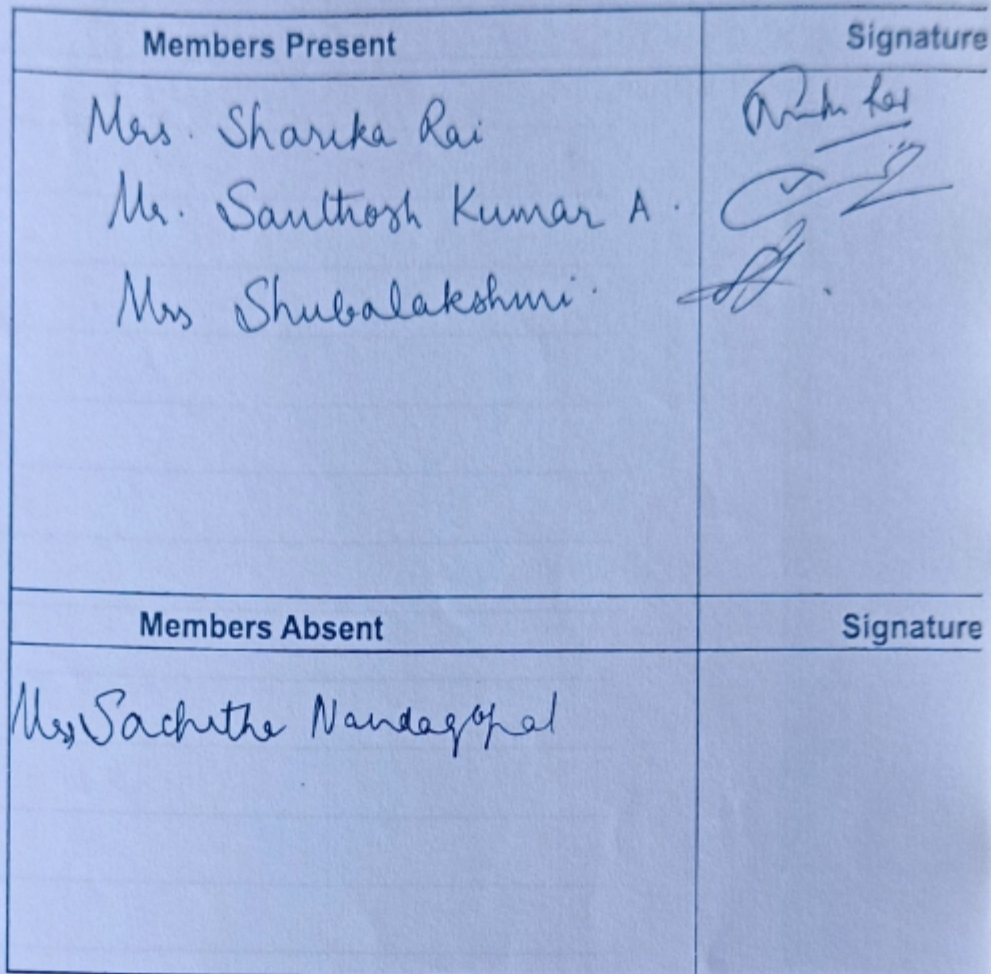 Members Present Signature
Mrs. Sharika Rai
Mr. Santhosh Kumar A.
Mrs Shubalakshmi.
Members Absent Signature
Mrs, Sachitha Nandagopal